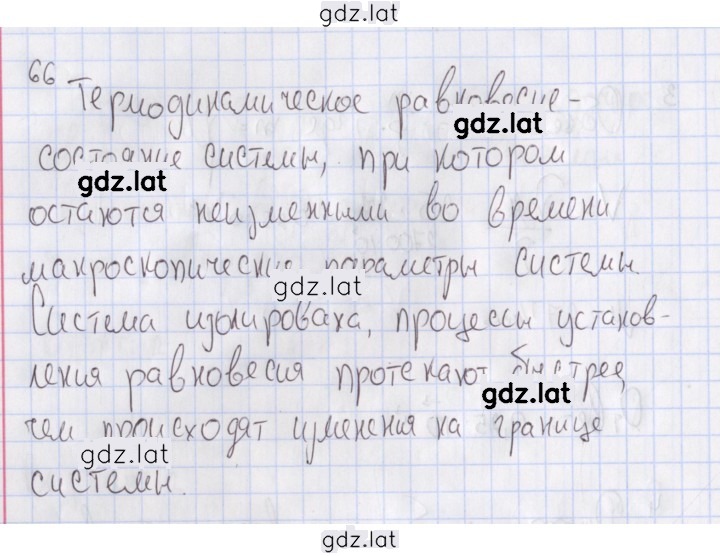 gdz.lat
66
Термодинамическое равновесие -
gdz.lat
состояние системы, при котором
gdz.lat
остаются неизменными во времени
макроскопические параметры системы.
gdz.lat
Система изолирована, процессы установ-
ления равновесия протекают быстрее,
gdz.lat
чем происходят изменения на границе
gdz.lat
системы.
gdz.lat